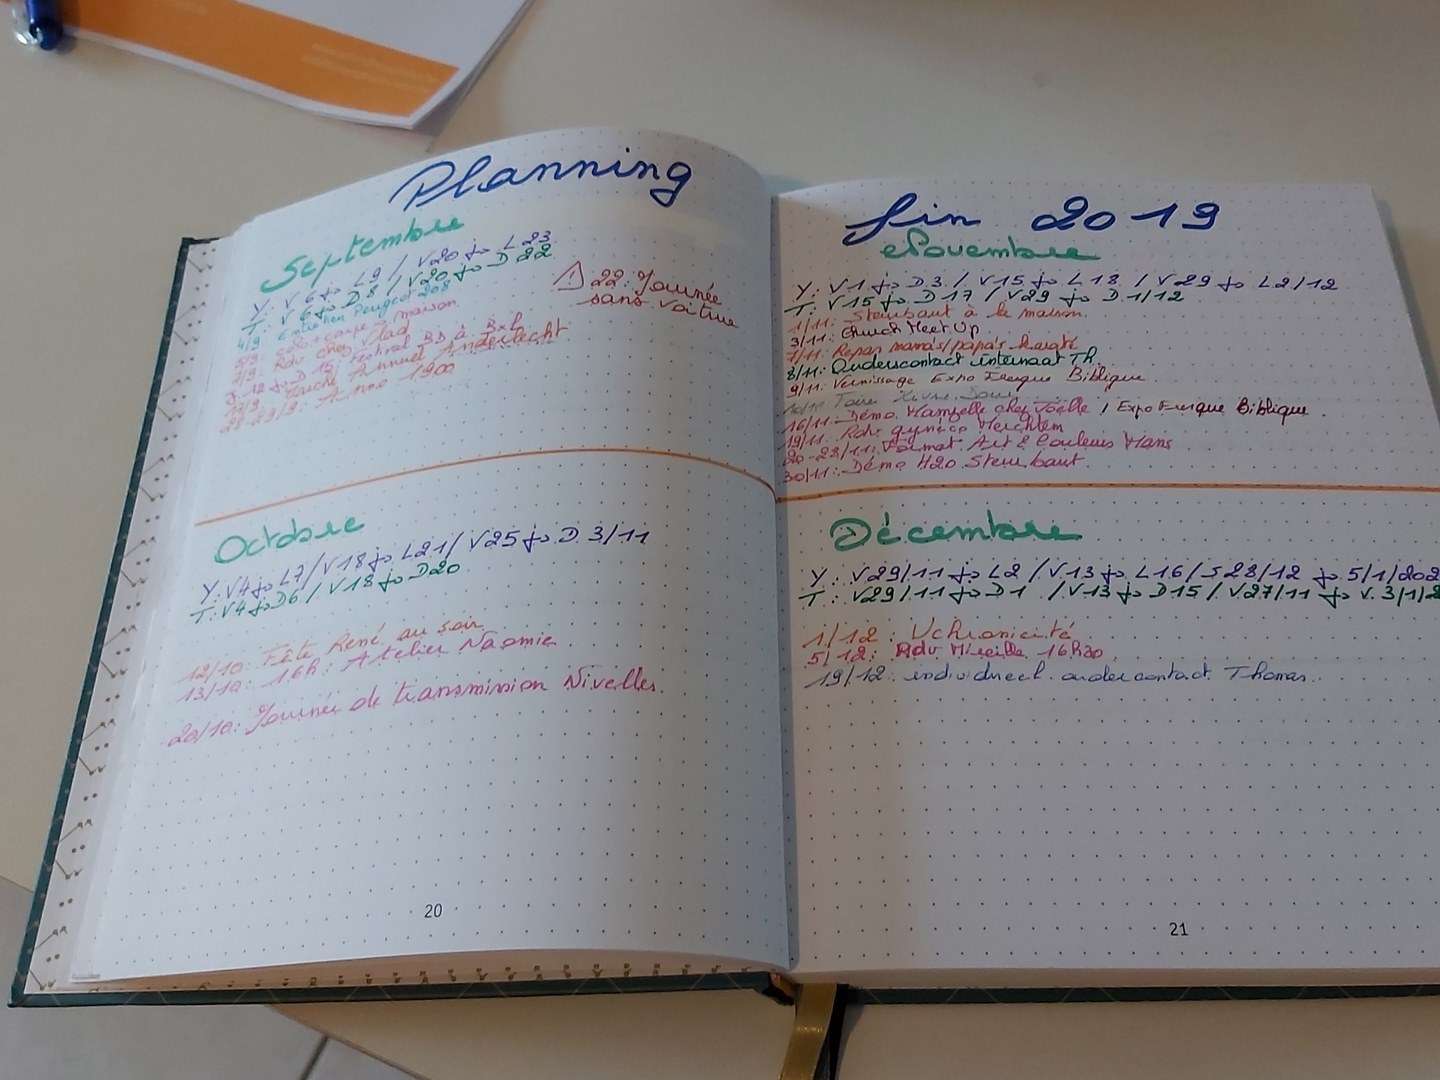 Planning
Septembre
Y: V6 jo L9 / V20 jo L23
T: V6 jo D8 / V20 jo D22
4/9 Entretien Peugeot 208
maison
Rdv chez Vlad
Festival BD à Bxl
Marché Annuel Anderlecht
28-29/9: Anno 1900
22: Journée
sans voiture
Octobre
Y: V4 jo L7 / V18 jo L21 / V25 jo D. 3/11
T: V4 jo D6 / V18 jo D20
12/10: Fête René au soir
13/10: 16h: Atelier Naomie
20/10: Journée de transmission Nivelles.
20
fin 2019
Novembre
Y: V1 jo D3 / V15 jo L18 / V29 jo L2/12
T: V15 jo D17 / V29 jo D1/12
1/11: Sterubaut à la maison
3/11: Church Meet Up
7/11: Repas mamas/papas
8/11: Oudercontact internaat Th
9/11: Vernissage Expo Fresque Biblique
Foire
16/11: Démo chez Joëlle / Expo Fresque Biblique
19/11: Rdv gynéco Merchtem
Format Art & Couleurs Mons
30/11: Démo H2O
Décembre
Y: V29/11 jo L2 / V13 jo L16 / S28/12 jo 5/1/202
T: V29/11 jo D1 / V13 jo D15 / V27/11 jo V. 3/1/2
1/12: Uchronicité
5/12: Rdv Mireille 16h30
19/12: individueel oudercontact Thomas.
21